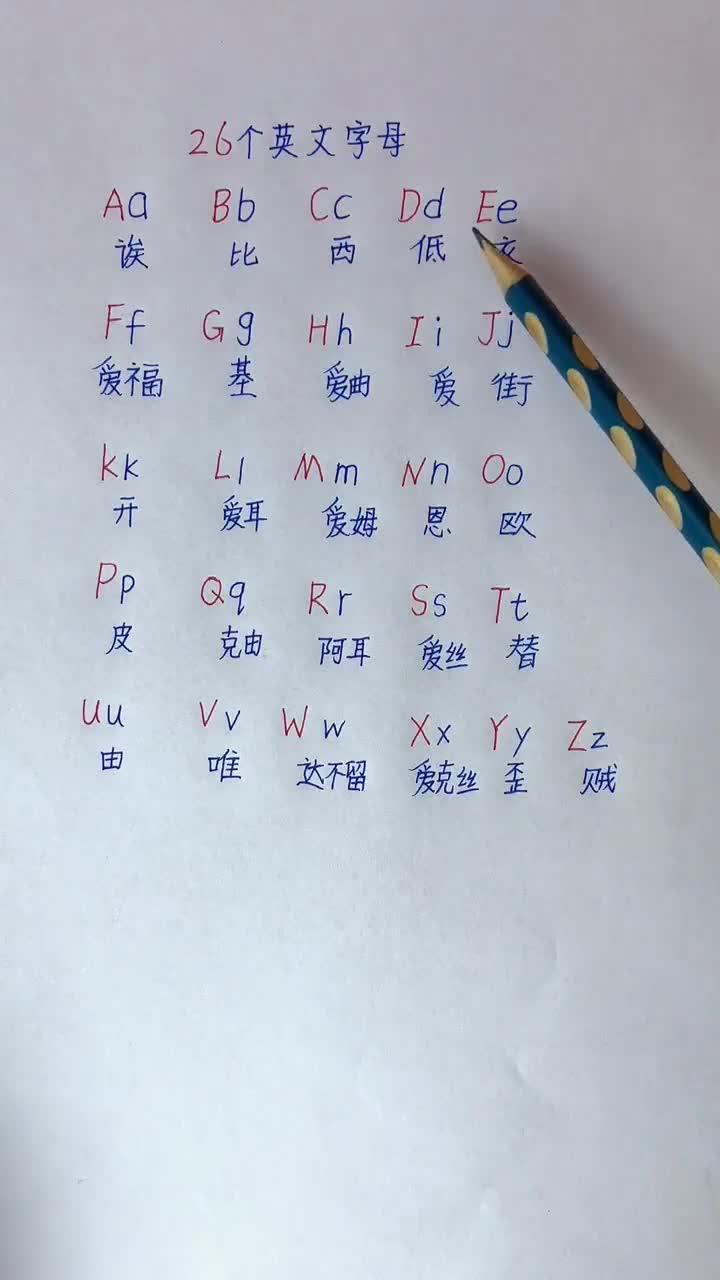 26个英文字母
Aa Bb Cc Dd Ee
诶 比 西 低 衣
Ff Gg Hh Ii Jj
爱福 基 爱曲 爱 街
Kk Ll Mm Nn Oo
开 爱耳 爱姆 恩 欧
Pp Qq Rr Ss Tt
皮 克由 阿耳 爱丝 替
Uu Vv Ww Xx Yy Zz
由 唯 达不留 爱克丝 歪 贼